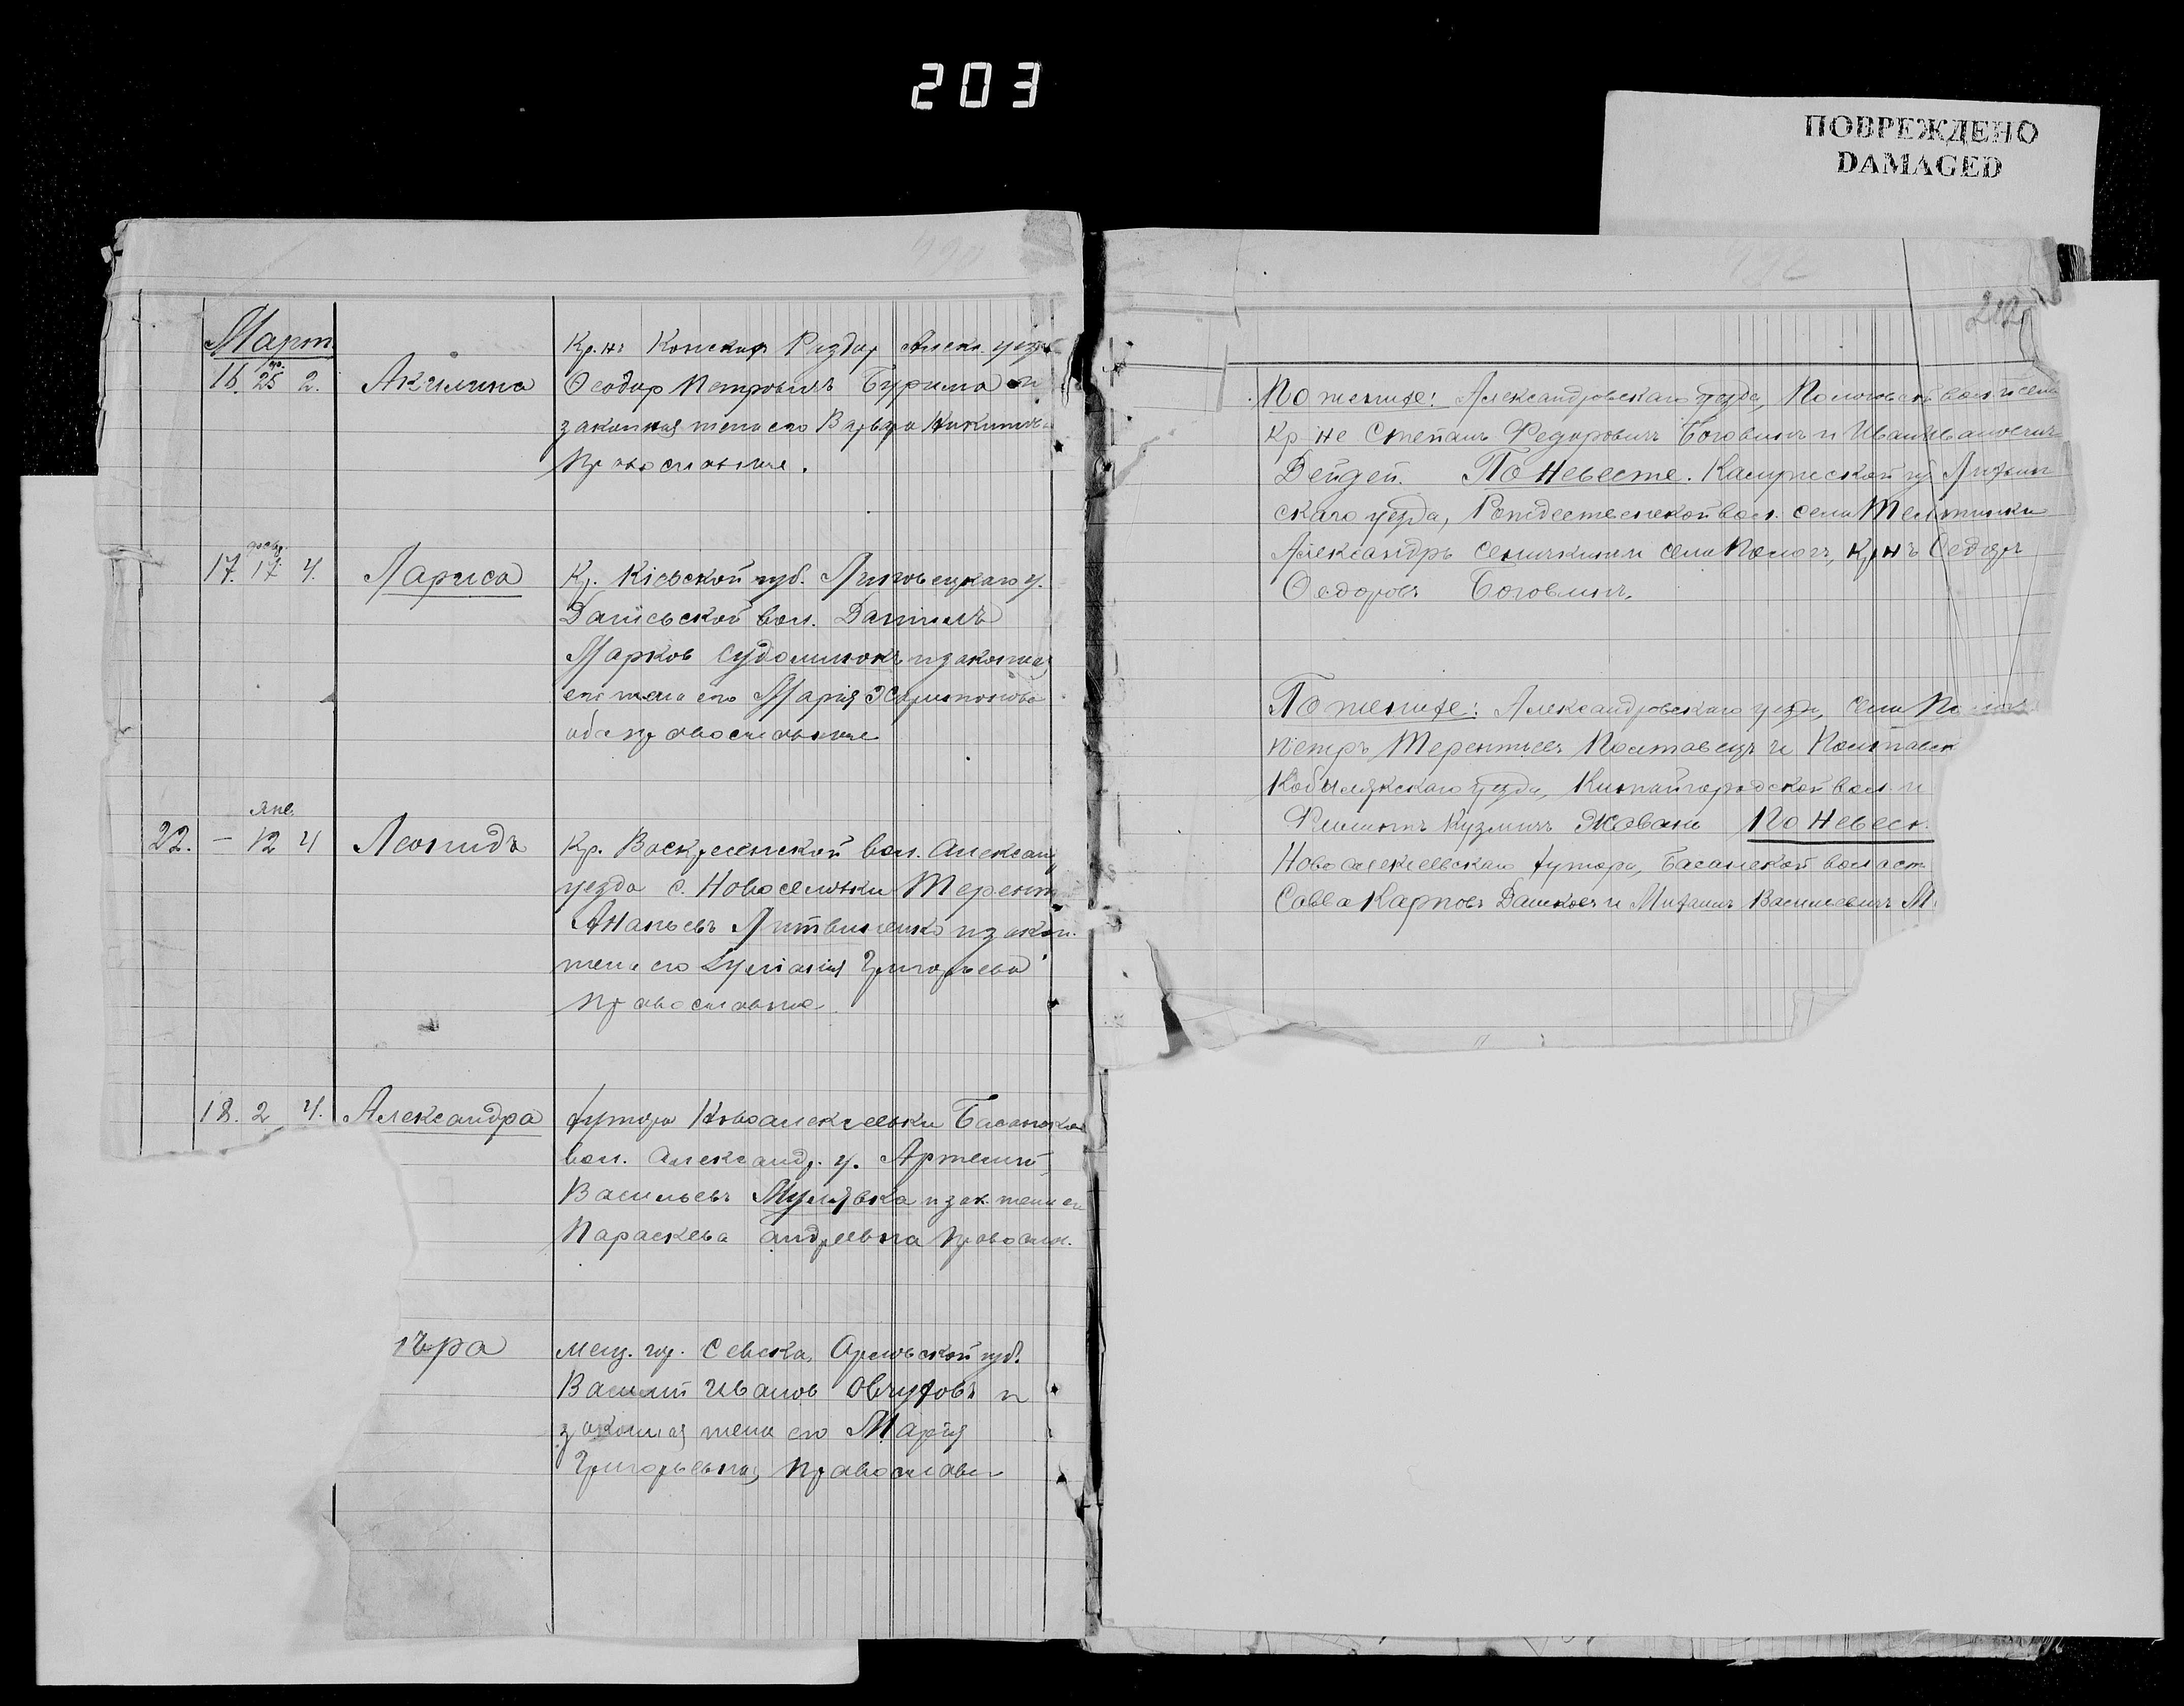 203
ПОВРЕЖДЕНО
DAMAGED
Март
16. 25 2. Акилина
Кр.нъ Конских Раздор Алек. уезда
Ѳеодор Петровичъ Бурима и
законная жена его Варвара Никитич
Православные.
февр.
17. 17 4. Лариса
Кр. Кіевской губ. Липовецкаго у.
вол. Даниилъ
Марков и законная
жена его Марія Харитонова
оба православные
янв.
22. — 12 4 Леонидъ
Кр. Воскресенской вол. Александ
уезда с. Новоселовки Терент
Ананьевъ Литвиненко и закон.
жена его Григорьева
православные
18. 2 4. Александра
хутора Новоалексеевки Басанской
вол. Александ. у. Артемий
Васильевъ Мулявка и зак. жена ея
Параскева Андреевна правосл.
ъра
мещ. гор. Севска, Орловской губ.
Василий Иванов Овчуховъ и
законная жена его Марія
Григорьевна, православн
212
По женихе: Александровскаго уезда, Пологовской вол. и села
кр-не Степанъ Федоровичъ Боговинъ и Иван Иванович
Дейдей. По Невесте. Калужской гу. Лихвин
скаго уезда, Рождественской вол. села
Александръ села Пологъ, кр-нъ Ѳедоръ
Ѳедоровъ Боговинъ.
По женихе: Александровскаго уезда, села По
Петръ Терентьевъ Полтавецъ и Полтавск
Кобелякскаго уезда, Китайгородской вол. и
Филиппъ Кузмичъ Жовань По Невест
Новоалексеевскаго хутора, Басанской волост
Савва Карповъ Дашковъ и Михаилъ Васильевичъ М